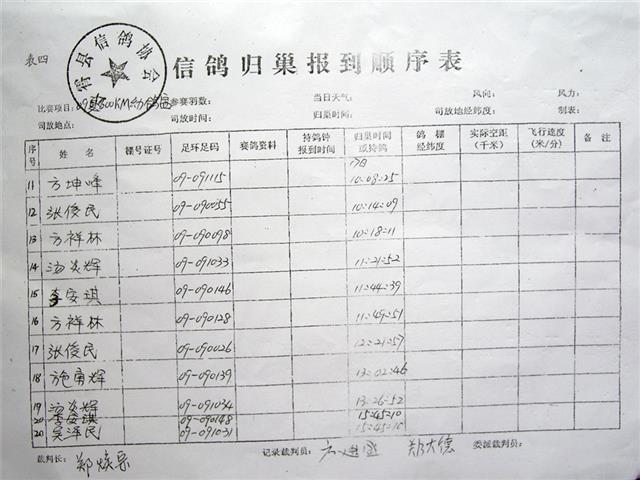 表四
县信鸽协会
信鸽归巢报到顺序表
比赛项目: 参赛羽数: 当日天气: 风向: 风力:
司放地点: 司放时间: 归巢时间: 司放地经纬度: 制表:
序号 姓名 棚号证号 足环足码 赛鸽资料 持鸽钟报到时间 归巢时间或持鸽 鸽棚经纬度 实际空距(千米) 飞行速度(米/分) 备注
17日
11 方坤峰 09-091115 10:08:25
12 张俊民 09-090055 10:14:09
13 方祥林 09-090098 10:18:11
14 汤炎辉 09-091033 11:21:52
15 李安琪 09-090146 11:44:39
16 方祥林 09-090128 11:49:51
17 张俊民 09-090026 12:21:57
18 施勇辉 09-090139 13:02:46
19 汤炎辉 09-091034 13:26:52
20 李安琪 09-090148 15:45:10
20 吴泽民 09-091031 15:45:10
裁判长: 记录裁判员: 郑大德 委派裁判员: